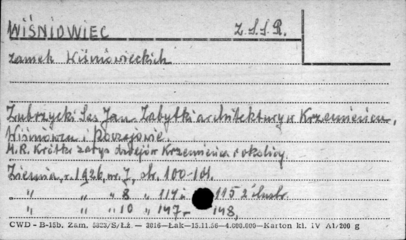 WIŚNIOWIEC Z.S.S.R.
zamek Wiśniowieckich
Zubrzycki Sas Jan. Zabytki architektury w Krzemieńcu,
Wiśniowcu i Poczajowie.
M.R. Krótki zarys dziejów Krzemieńca i okolicy
Ziemia, r. 1926, nr. 7, str. 100-101.
" " " 8 " 114 i 115 2 ilustr.
" " " 10 " 147- 148,
CWD - B-15b. Zam. 5823/S/Łż — 2016—Łak—15.11.56—4.000.000—Karton kl. IV A1/200 g